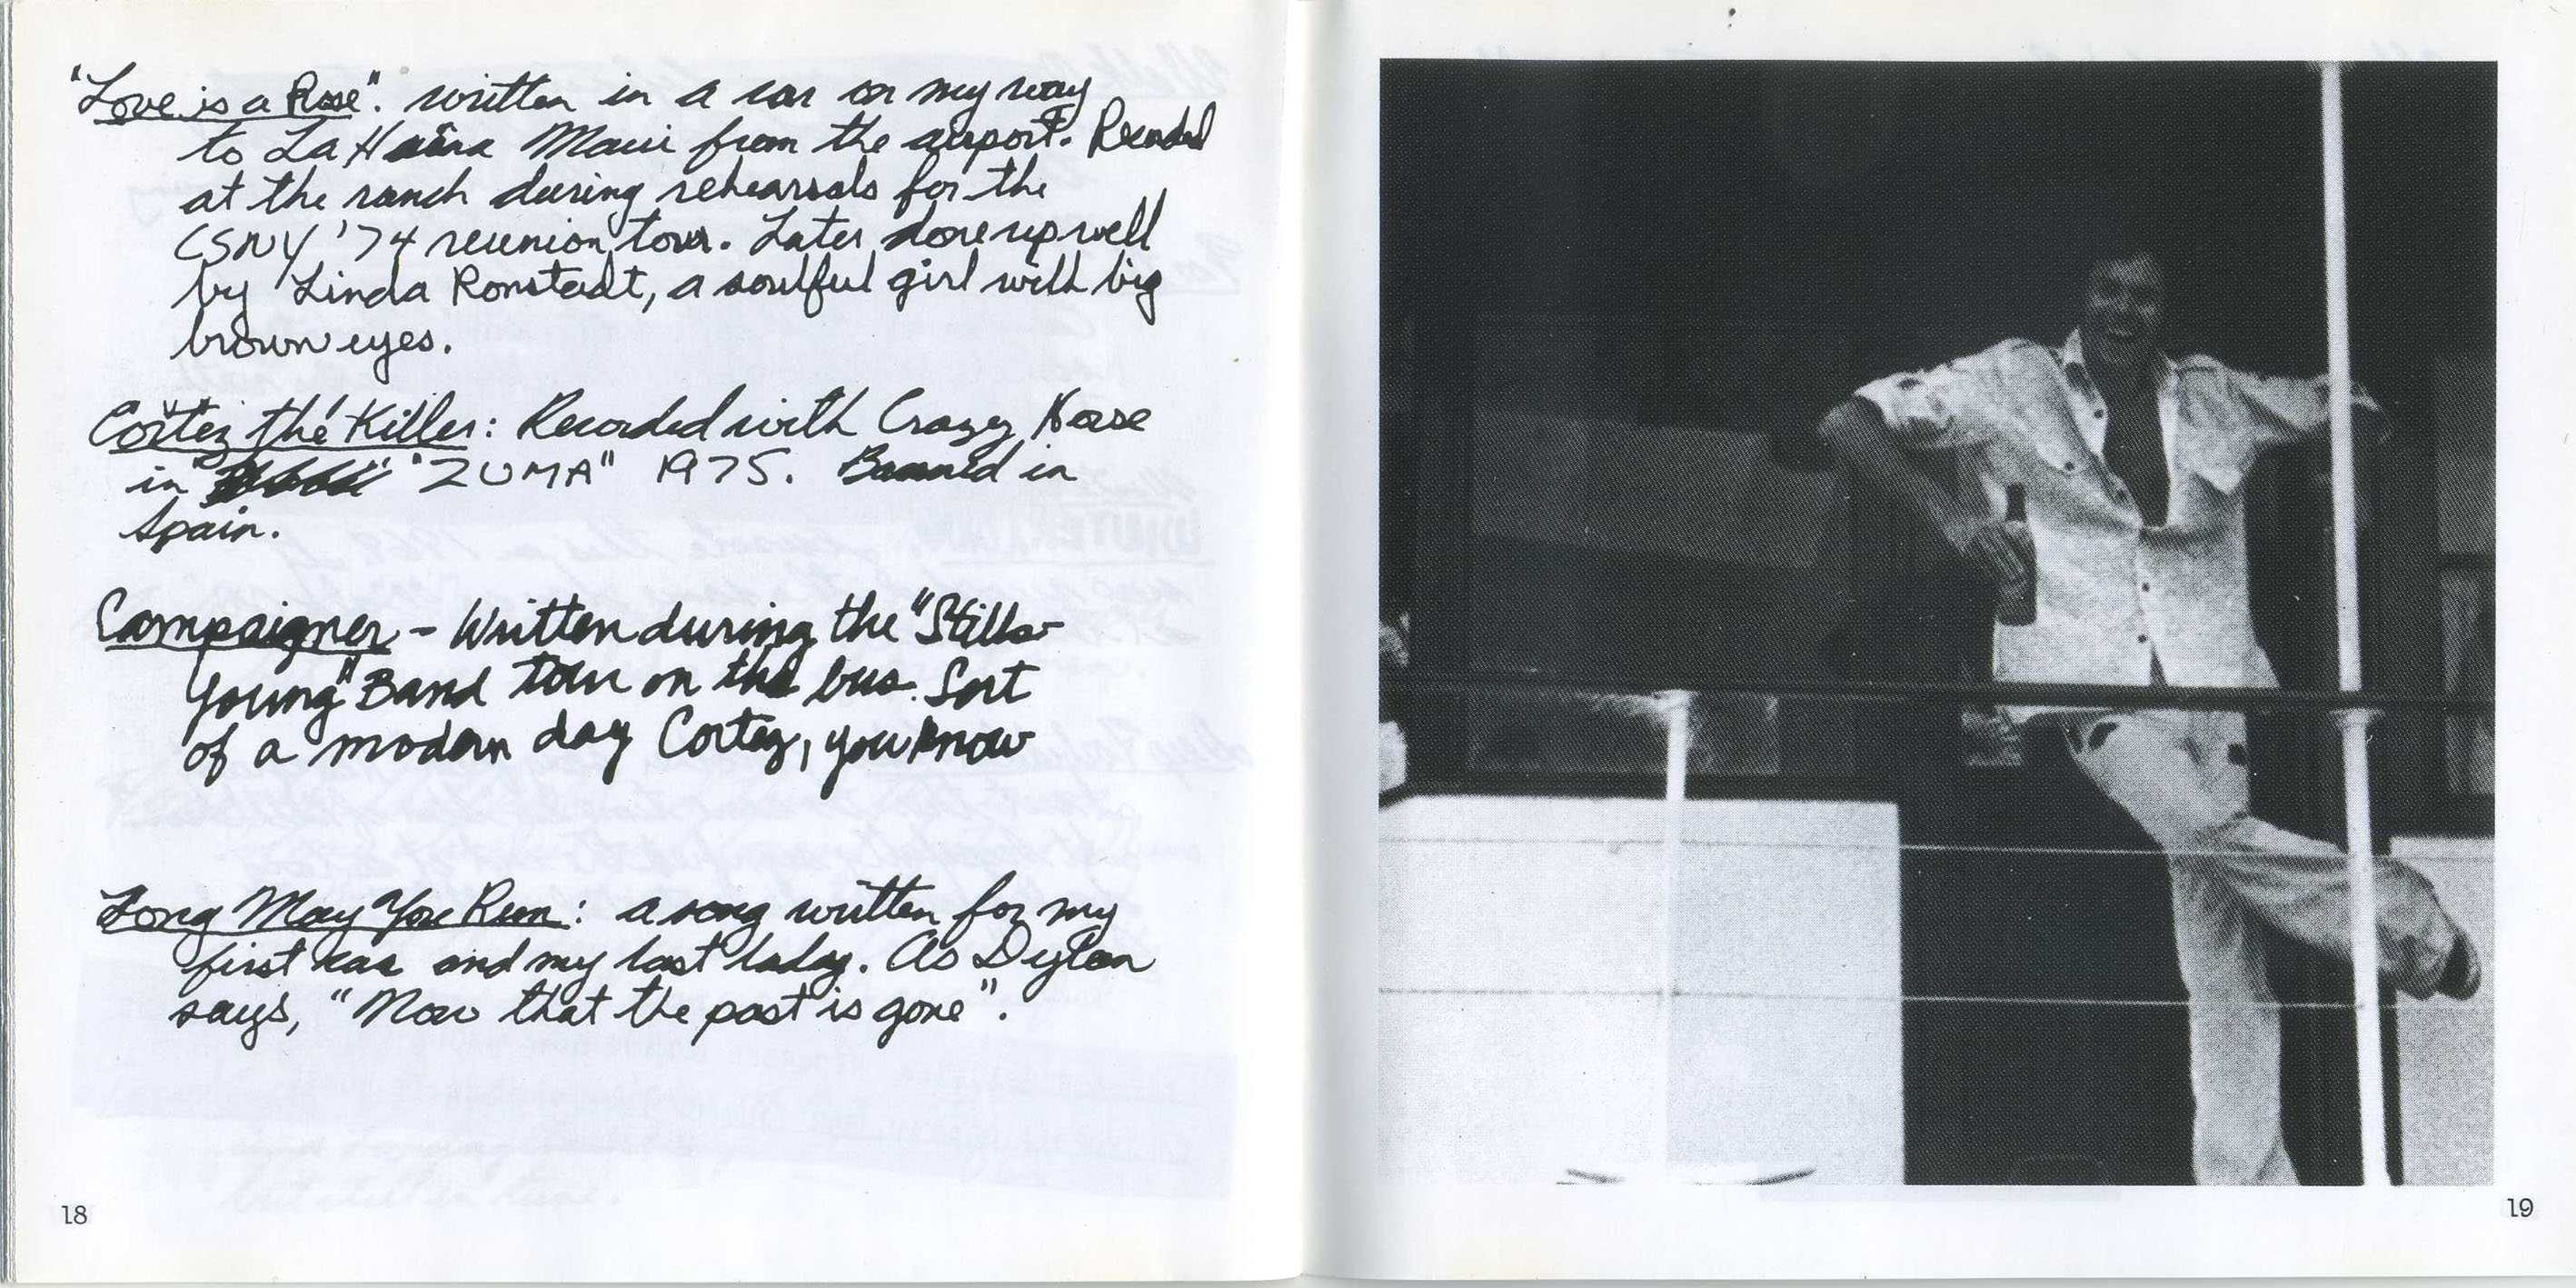 "Love is a Rose". written in a car on my way
to La Haina Maui from the airport. Recorded
at the ranch during rehearsals for the
CSNY '74 reunion tour. Later done up well
by Linda Ronstadt, a soulful girl with big
brown eyes.
Cortez the Killer: Recorded with Crazy Horse
in "ZUMA" 1975. Banned in
Spain.
Campaigner - Written during the "Stills-
Young" Band tour on the bus. Sort
of a modern day Cortez, you know
Long May You Run: a song written for my
first car and my last lady. As Dylan
says, "Now that the past is gone".
18
19